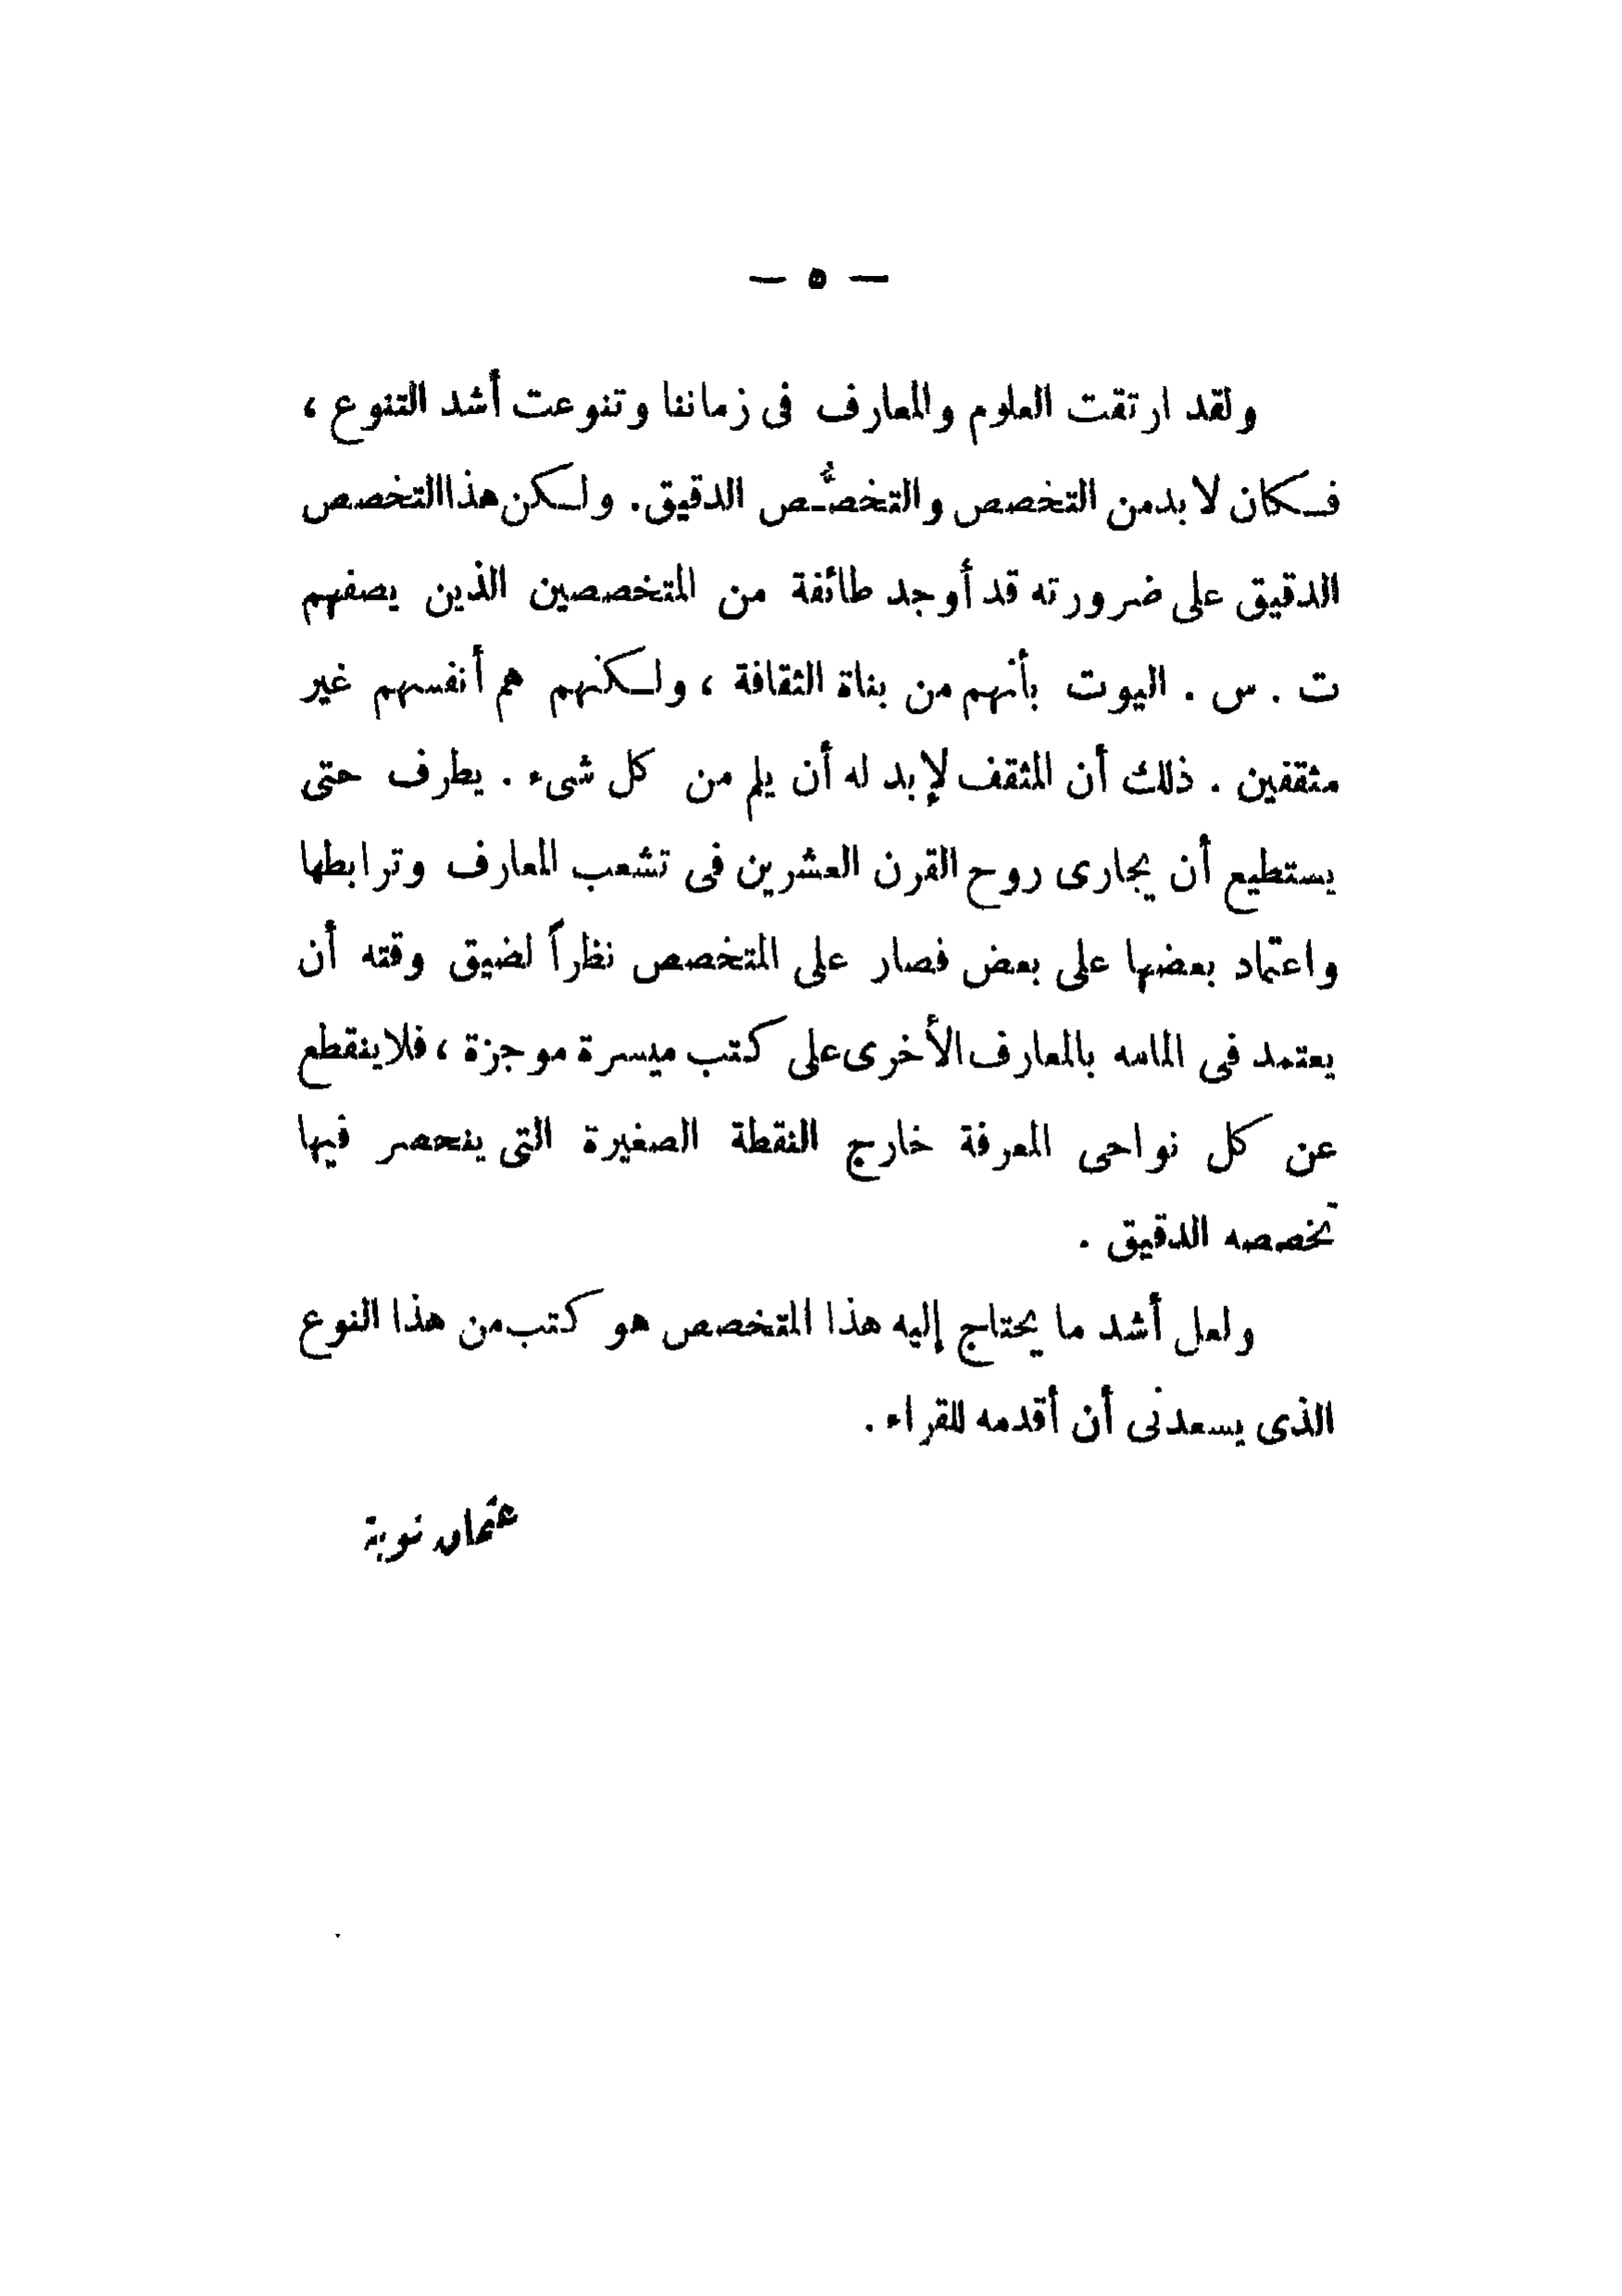 — ٥ —
ولقد ارتقت العلوم والمعارف فى زماننا وتنوعت أشد التنوع ،
فكان لا بد من التخصص والتخصُّص الدقيق. ولكن هذا التخصص
الدقيق على ضرورته قد أوجد طائفة من المتخصصين الذين يصفهم
ت . س . اليوت بأنهم من بناة الثقافة ، ولكنهم هم أنفسهم غير
مثقفين . ذلك أن المثقف لإبد له أن يلم من كل شىء . يطرف حتى
يستطيع أن يجارى روح القرن العشرين فى تشعب المعارف وترابطها
واعتماد بعضها على بعض فصار على المتخصص نظراً لضيق وقته أن
يعتمد فى المامه بالمعارف الأخرى على كتب ميسرة موجزة ، فلا ينقطع
عن كل نواحى المعرفة خارج النقطة الصغيرة التى ينحصر فيها
تخصصه الدقيق .
ولعل أشد ما يحتاج إليه هذا المتخصص هو كتب من هذا النوع
الذى يسعدنى أن أقدمه للقراء .
عثمان نوية